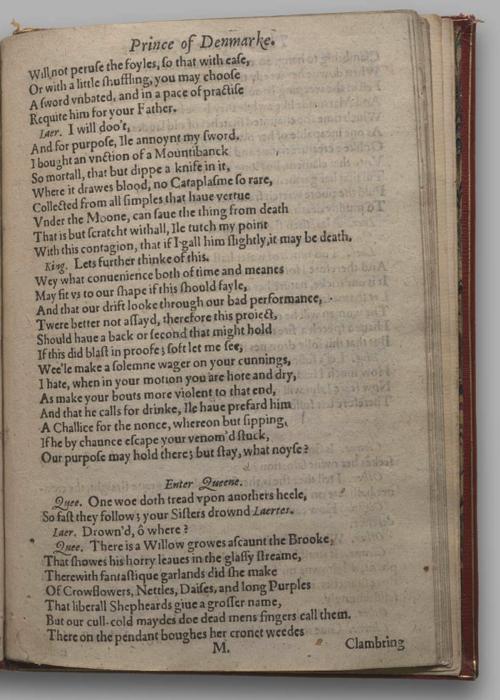 Prince of Denmarke.
Will not peruse the foyles, so that with ease,
Or with a little shuffling, you may choose
A sword vnbated, and in a pace of practise
Requite him for your Father.
Laer. I will doo't,
And for purpose, Ile annoynt my sword.
I bought an vnction of a Mountibanck
So mortall, that but dippe a knife in it,
Where it drawes blood, no Cataplasme so rare,
Collected from all simples that haue vertue
Vnder the Moone, can saue the thing from death
That is but scratcht withall, Ile tutch my point
With this contagion, that if I gall him slightly, it may be death.
King. Lets further thinke of this.
Wey what conuenience both of time and meanes
May fit vs to our shape if this should fayle,
And that our drift looke through our bad performance,
Twere better not assayd, therefore this proiect,
Should haue a back or second that might hold
If this did blast in proofe; soft let me see,
Wee'le make a solemne wager on your cunnings,
I hate, when in your motion you are hote and dry,
As make your bouts more violent to that end,
And that he calls for drinke, Ile haue prefard him
A Challice for the nonce, whereon but sipping,
If he by chaunce escape your venom'd stuck,
Our purpose may hold there; but stay, what noyse?
Enter Queene.
Quee. One woe doth tread vpon anothers heele,
So fast they follow; your Sisters drownd Laertes.
Laer. Drown'd, ô where?
Quee. There is a Willow growes ascaunt the Brooke,
That showes his horry leaues in the glassy streame,
Therewith fantastique garlands did she make
Of Crowflowers, Nettles, Daises, and long Purples
That liberall Shepheards giue a grosser name,
But our cull-cold maydes doe dead mens fingers call them.
There on the pendant boughes her cronet weedes
M.
Clambring